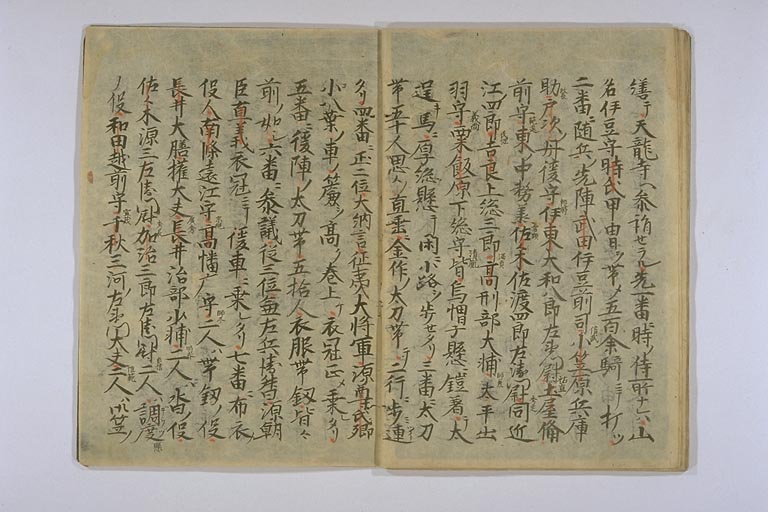 繕テ天龍寺ヘ参詣セラル先一番ニ時ノ侍所ナレハ山
名伊豆守時氏甲冑ヲ帯メ五百余騎ニテ打ツ
二番ニ随兵ノ先陣武田伊豆前司小笠原兵庫
助戸次丹後守伊東大和八郎左衛門尉土屋備
前守東中務丞佐々木佐渡四郎左衛門尉同近
江四郎吉良上総三郎高刑部大輔大平出
羽守粟飯原下総守皆烏帽子懸ニ鎧著テ太
逞馬ニ厚総懸テ閑ニ小路ヲ歩セタリ三番ニ太刀
帯五十人思々ノ直垂ニ金作ノ太刀帯テ二行ニ歩連
タリ四番ニ正二位大納言征夷大将軍源尊氏卿
小八葉ノ車ノ簾ヲ高ク巻上テ衣冠正メ乗タリ
五番ニ後陣ノ太刀帯五拾人衣服帯釼皆々
前ノ如シ六番ニ参議従三位兼左兵衛督源朝
臣直義衣冠ニテ後車ニ乗タリ七番ニ布衣ノ
役人南條遠江守高播广守二人ハ帯釼ノ役
長井大膳権大夫長井治部少輔二人ハ沓ノ役
佐々木源三左衛門尉加治三郎左衛門尉二人ハ調度
ノ役和田越前守千秋三河左衛門大夫二人ハ御笠ノ